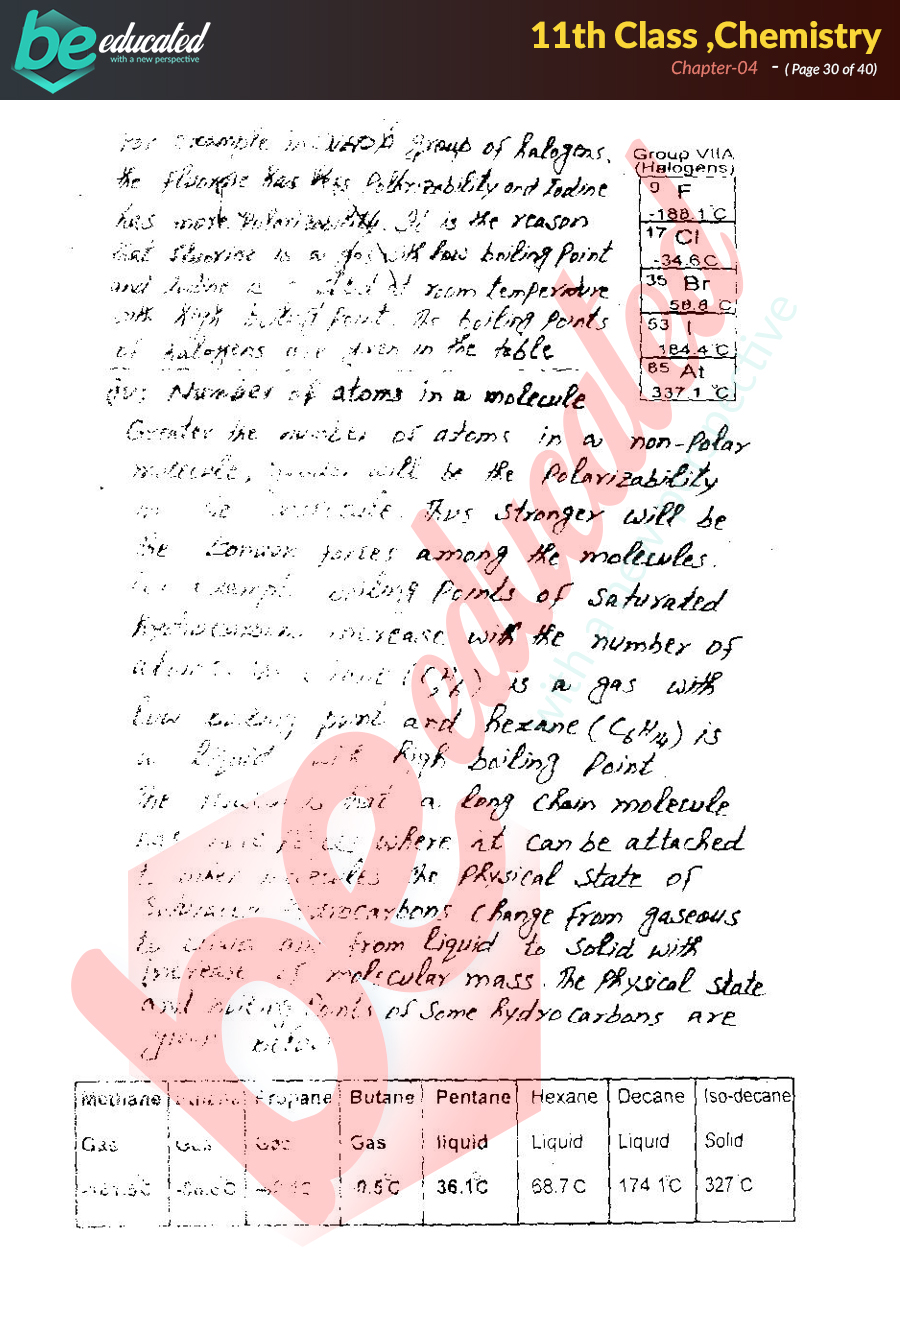 be educated
with a new perspective
11th Class ,Chemistry
Chapter-04 - ( Page 30 of 40)
For example in group of halogens.
the fluorine has less Polarizability and Iodine
has more Polarizability. It is the reason
that fluorine is a gas with low boiling Point
and Iodine is at room temperature
with high boiling Point. The boiling Points
of halogens are given in the table
Group VIIA
(Halogens)
9 F
-188.1°C
17 Cl
-34.6 C
35 Br
58.8 C
53 I
184.4°C
85 At
337.1 °C
Number of atoms in a molecule
Greater the number of atoms in a non-Polar
molecule, will be the Polarizability
the molecule. Thus stronger will be
the London forces among the molecules.
For example boiling Points of saturated
hydrocarbons increase with the number of
is a gas with
low boiling point and hexane (C6H14) is
a liquid with high boiling Point
The reason is that a long chain molecule
has more places where it can be attached
to other molecules the Physical State of
Saturated hydrocarbons Change from gaseous
to liquid and from liquid to solid with
increase of molecular mass. The Physical state
and boiling Points of some hydrocarbons are
given below
Methane Ethane Propane Butane Pentane Hexane Decane Iso-decane
Gas Gas Gas Gas liquid Liquid Liquid Solid
-0.5°C 36.1°C 68.7 C 174.1°C 327°C
be educated
with a new perspective